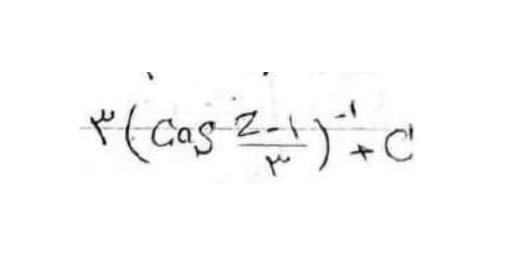 ۳(Cos (z-۱)/۳)^-۱ + C